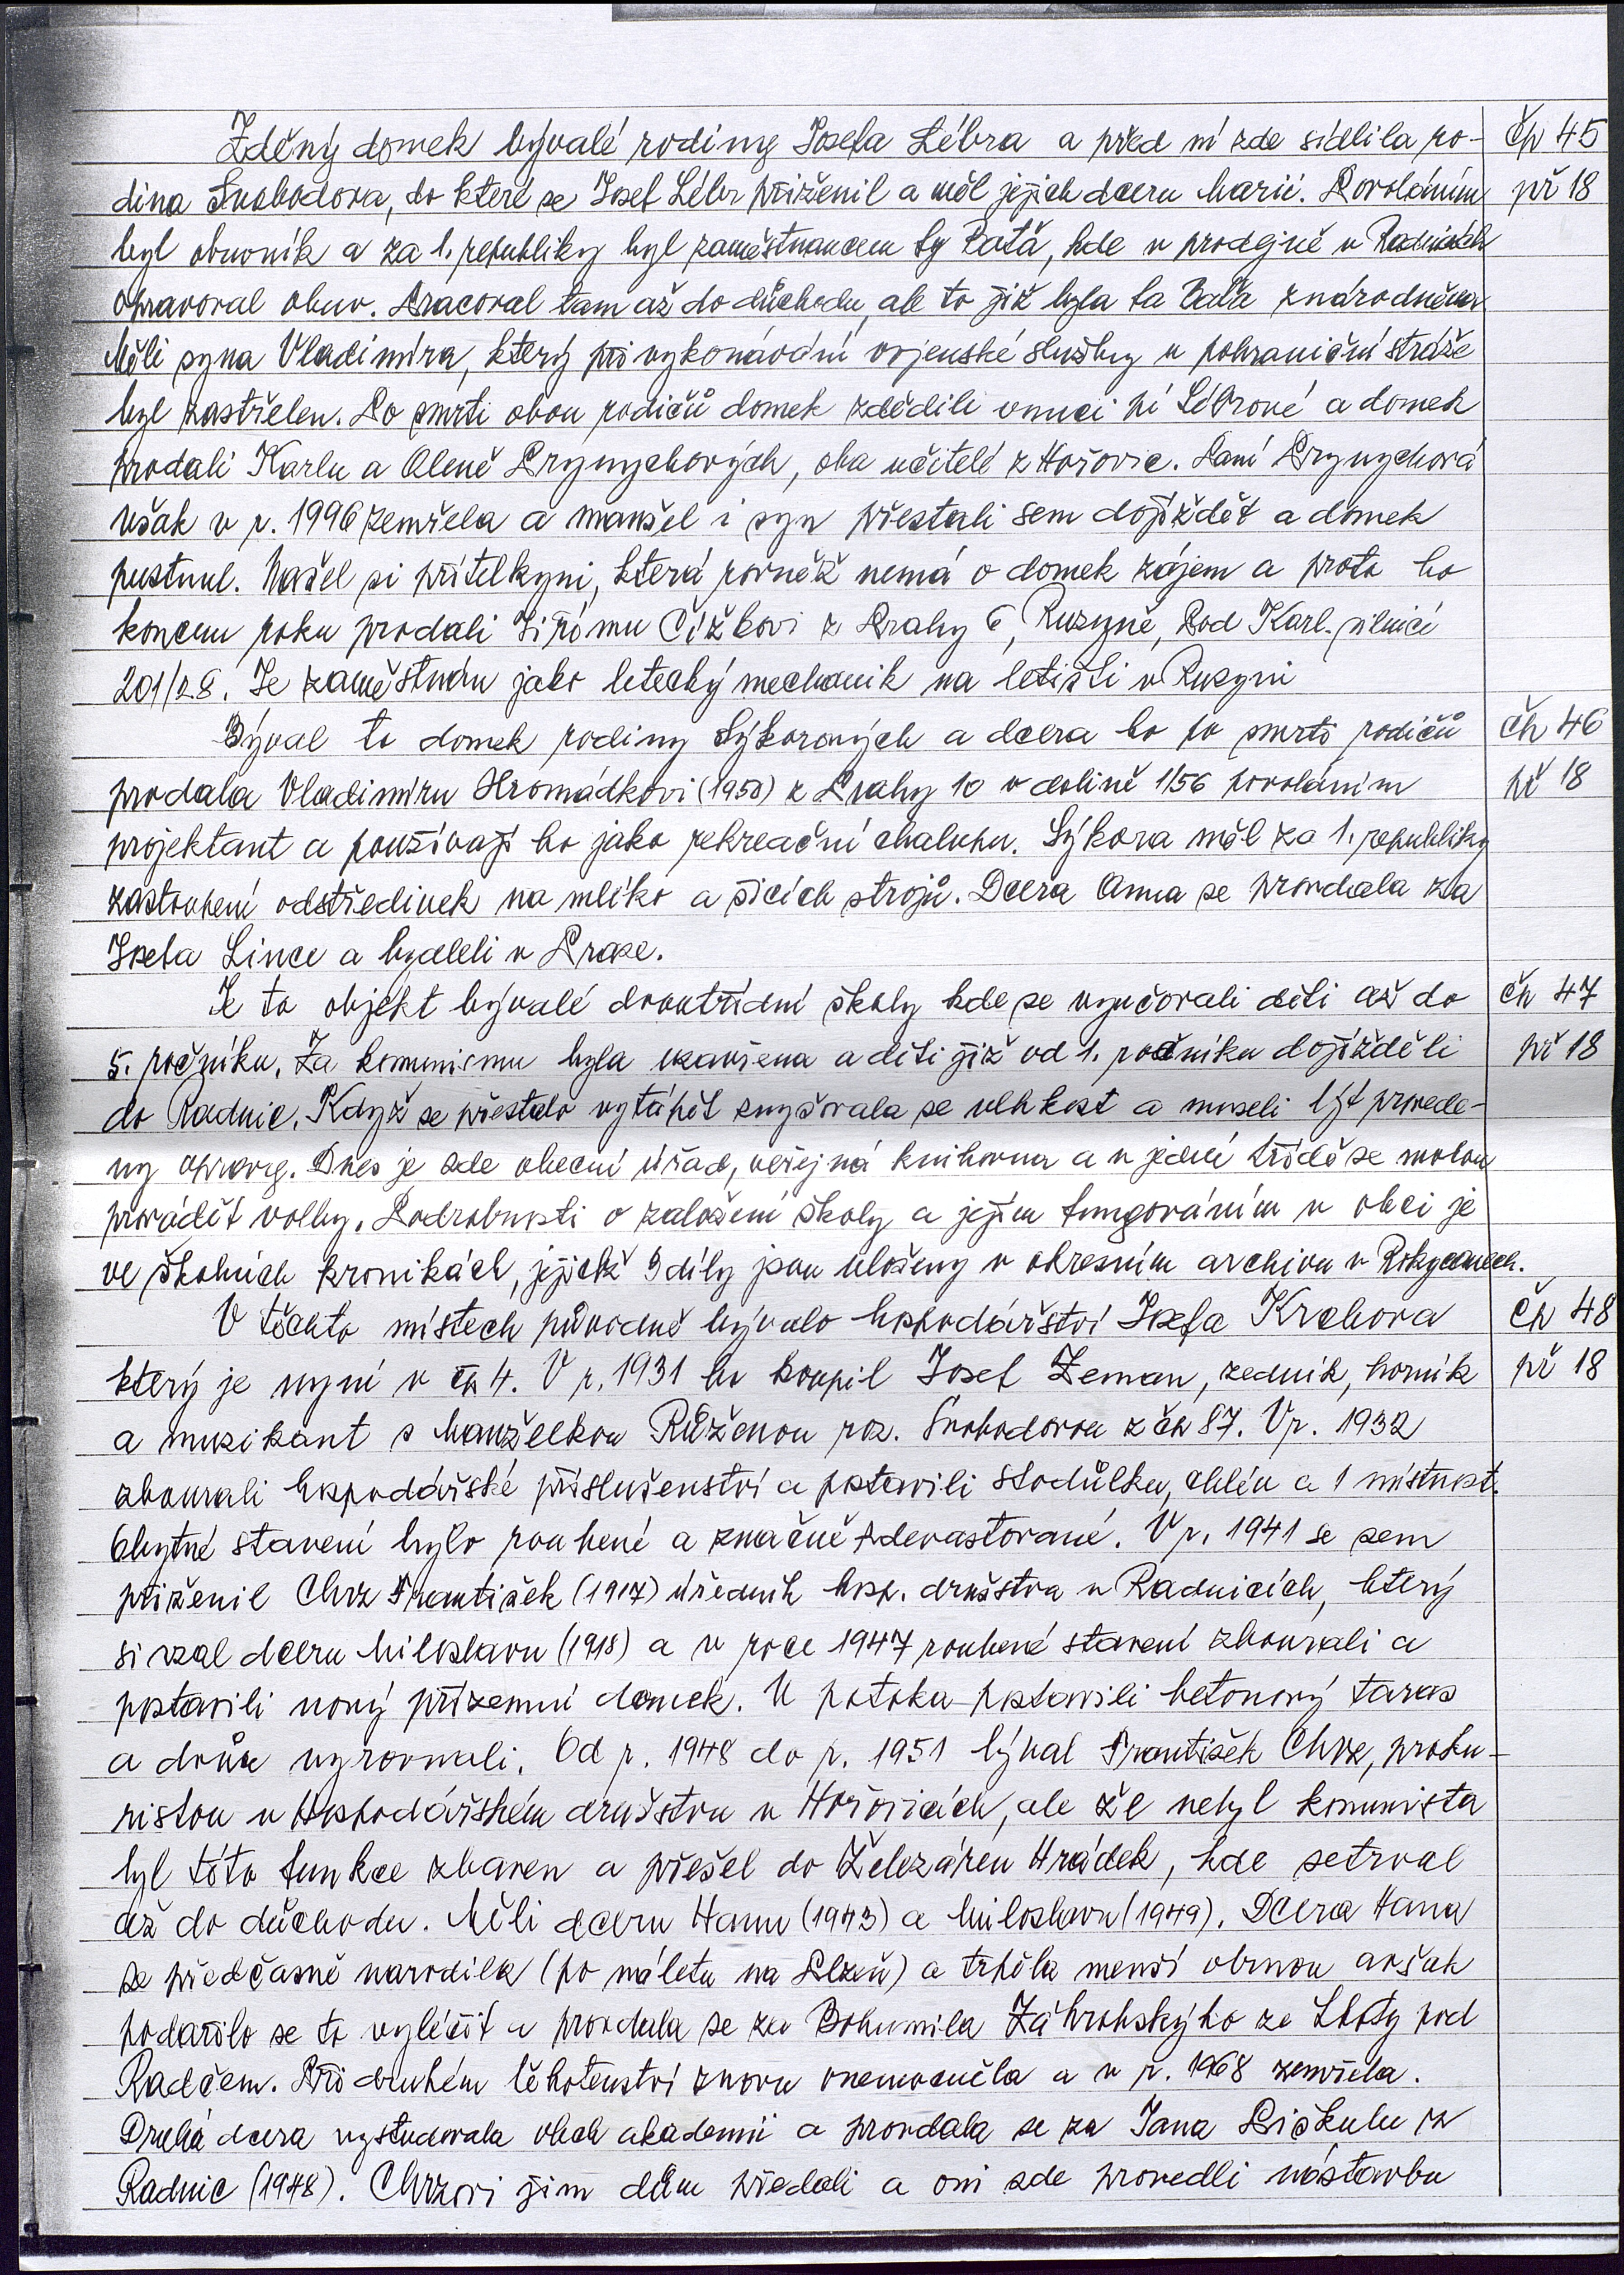 Zděný domek bývalé rodiny Josefa Lébra a před ní zde sídlila ro- čp 45
dina Svobodova, do které se Josef Lébr přiženil a měl jejich dceru Marii. Povoláním př 18
byl obuvník a za 1. republiky byl zaměstnancem fy Baťa, kde v prodejně v Radnicích
opravoval obuv. Pracoval tam až do důchodu, ale to již byla fa Baťa znárodněna.
Měli syna Vladimíra, který při vykonávání vojenské služby u pohraniční stráže
byl zastřelen. Po smrti obou rodičů domek zdědili vnuci pí Lébrové a domek
prodali Karlu a Oleně Prynychových, oba učitelé z Hořovic. Paní Prynychová
však v r. 1996 zemřela a manžel i syn přestali sem dojíždět a domek
pustnul. Našel si přítelkyni, která rovněž nemá o domek zájem a proto ho
koncem roku prodali Jiřímu Čížkovi z Prahy 6, Ruzyně, Pod Karl. pilnicí
201/28. Je zaměstnán jako letecký mechanik na letišti v Ruzyni
Býval to domek rodiny Sýkorových a dcera ho po smrti rodičů čp 46
prodala Vladimíru Hromádkovi (1950) z Prahy 10 v dolině 1156 povoláním př 18
projektant a používají ho jako rekreační chalupu. Sýkora měl za 1. republiky
zastoupení odstředivek na mlíko a šicích strojů. Dcera Anna se provdala za
Josefa Lince a bydleli v Praze.
Je to objekt bývalé dvoutřídní školy kde se vyučovali děti až do čp 47
5. ročníku. Za komunismu byla uzavřena a děti již od 1. ročníku dojížděli př 18
do Radnic. Když se přestalo vytápět zvyšovala se vlhkost a museli být provede-
ny opravy. Dnes je zde obecní úřad, veřejná knihovna a v jedné třídě se mohou
provádět volby. Podrobnosti o založení školy a jejím fungováním v obci je
ve školních kronikách, jejichž 3 díly jsou uloženy v okresním archivu v Rokycanech.
V těchto místech původně bývalo hospodářství Josefa Krchova čp 48
který je nyní v čp 4. V r. 1931 ho koupil Josef Zeman, zedník, horník př 18
a muzikant s manželkou Růženou roz. Svobodovou z čp 87. V r. 1932
zbourali hospodářské příslušenství a postavili stodůlku, chlév a 1 místnost.
Obytné stavení bylo roubené a značně zdevastované. V r. 1941 se sem
přiženil Chrz František (1917) úředník hosp. družstva v Radnicích, který
si vzal dceru Miloslavu (1918) a v roce 1947 roubené stavení zbourali a
postavili nový přízemní domek. U potoka postavili betonový taras
a dvůr vyrovnali. Od r. 1948 do r. 1951 býval František Chrz, proku-
ristou v Hospodářském družstvu v Hořovicích, ale že nebyl komunista
byl této funkce zbaven a přešel do Železáren Hrádek, kde setrval
až do důchodu. Měli dceru Hanu (1943) a Miloslavu (1949). Dcera Hana
se předčasně narodila (po náletu na Plzeň) a trpěla menší obrnou avšak
podařilo se to vyléčit a provdala se za Bohumila Záhrobského ze Lhoty pod
Radčem. Při druhém těhotenství znovu onemocněla a v r. 1968 zemřela.
Druhá dcera vystudovala obch akademii a provdala se za Jana Piškulu z
Radnic (1948). Chrzovi jim dům předali a oni zde provedli nástavbu